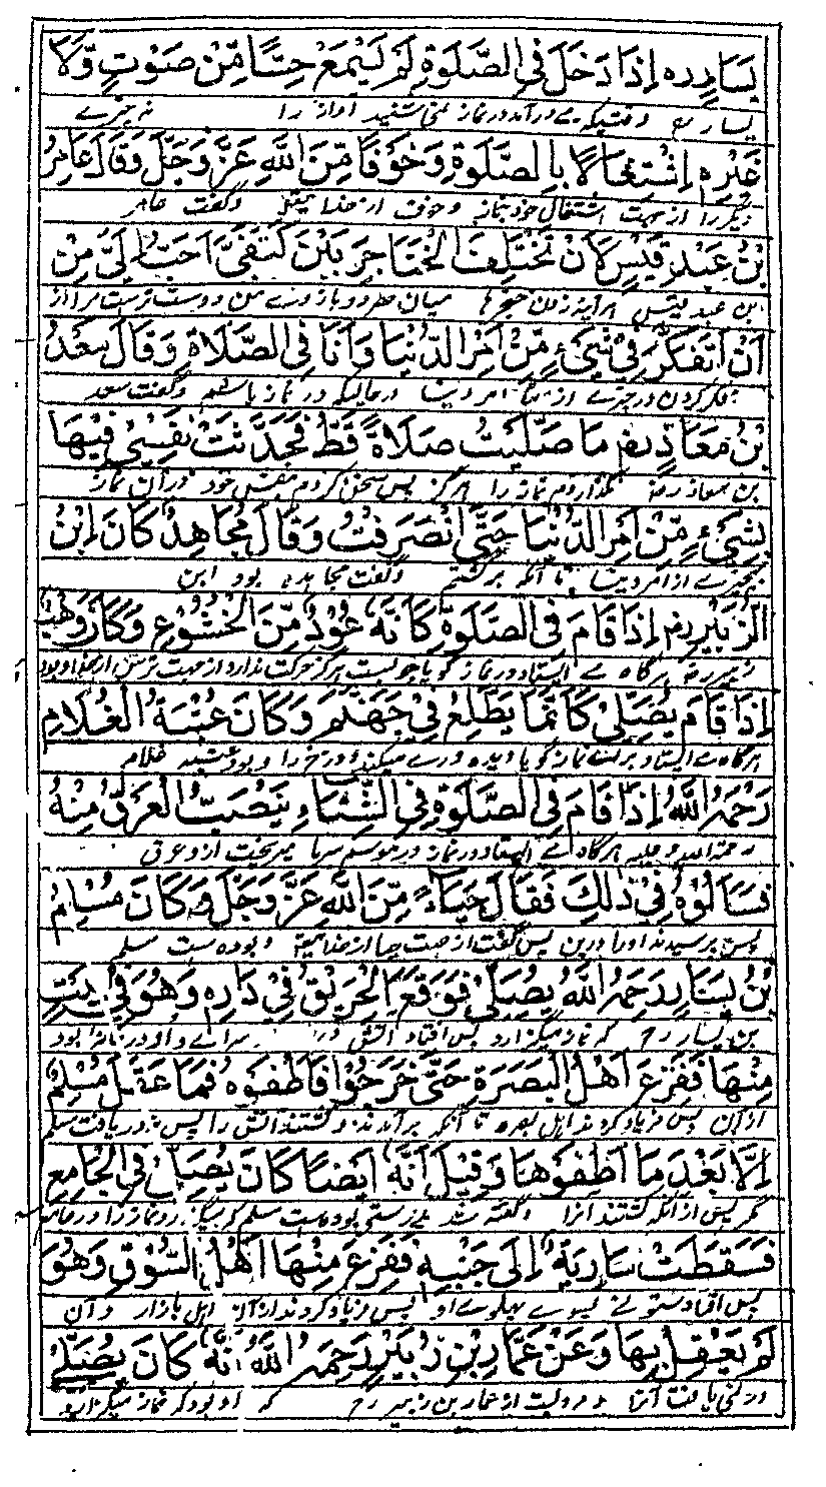 يَسَارٍ ره اِذَا دَخَلَ فِي الصَّلٰوةِ لَمْ يَسْمَعْ حِسًّا مِّنْ صَوْتٍ وَّلَا
يسار رح وقتيكه مے درآمد در نماز نمی شنید آواز را نه چیزے
غَيْرِهٖ اِشْتِغَالًا بِالصَّلٰوةِ وَخَوْفًا مِّنَ اللّٰهِ عَزَّ وَجَلَّ وَقَالَ عَامِرُ
دیگر را از جهت اشتغال خود بنماز و خوف از خدا وگفت عامر
بْنُ عَبْدِ قَيْسٍ لَاَنْ تَخْتَلِفَ الْخَنَاجِرُ بَيْنَ كَتِفَيَّ اَحَبُّ اِلَيَّ مِنْ
ابن عبد قیس هر آینه زدن خنجرها میان هر دو بازوے من دوست تر ست مرا از
اَنْ اَتَفَكَّرَ فِيْ شَيْءٍ مِّنْ اَمْرِ الدُّنْيَا وَاَنَا فِي الصَّلَاةِ وَقَالَ سَعْدُ
فکر کردن در چیزے از امر دنیا در حالیکه در نماز باشم وگفت سعد
بْنُ مَعَاذٍ رض مَا صَلَّيْتُ صَلَاةً قَطُّ فَحَدَّثْتُ نَفْسِيْ فِيْهَا
بن معاذ رض نگذاردم نماز را هرگز پس سخن کردم بنفس خود در آن نماز
بِشَيْءٍ مِّنْ اَمْرِ الدُّنْيَا حَتّٰى انْصَرَفْتُ وَقَالَ مُجَاهِدٌ كَانَ ابْنُ
بچیزے از امر دنیا تا آنکه برگشتم وگفت مجاهد بود ابن
الزُّبَيْرِ رض اِذَا قَامَ فِي الصَّلٰوةِ كَاَنَّهٗ عُوْدٌ مِّنَ الْخُشُوْعِ وَكَانَ وَهْبٌ
زبیر رض هرگاه مے ایستاد در نماز گویا چوبیست هرگز حرکت ندارد از جهت ترس از خدا و بود
اِذَا قَامَ يُصَلِّيْ كَاَنَّمَا يَطَّلِعُ فِيْ جَهَنَّمَ وَكَانَ عُتْبَةُ الْغُلَامِ
هرگاه مے ایستاد براے نماز گویا دیده ورے میکند دوزخ را و بود عتبه غلام
رَحِمَهُ اللّٰهُ اِذَا قَامَ فِي الصَّلٰوةِ فِي الشِّتَاءِ يَتَصَبَّبُ الْعَرَقُ مِنْهُ
رحمة الله علیه هرگاه مے ایستاد در نماز در موسم سرما میریخت از و عرق
فَسَاَلُوْهُ فِيْ ذٰلِكَ فَقَالَ حَيَاءً مِّنَ اللّٰهِ عَزَّ وَجَلَّ وَكَانَ مُسْلِمُ
پس پرسیدند او را درین پس گفت از جهت حیا از خدا و بوده ست مسلم
بْنُ يَسَارٍ رَحِمَهُ اللّٰهُ يُصَلِّيْ فَوَقَعَ الْحَرِيْقُ فِيْ دَارِهٖ وَهُوَ فِيْ بَيْتٍ
بن یسار رح که نماز میگزارد پس افتاد آتش در سراے و او در خانه بود
مِنْهَا فَفَزِعَ اَهْلُ الْبَصَرَةِ حَتّٰى خَرَجُوْا فَاَطْفَوْهُ فَمَا عَقَلَ مُسْلِمٌ
از آن پس فریاد کردند اهل بصره تا آنکه برآمدند و کشتند آتش را پس نه دریافت مسلم
اِلَّا بَعْدَ مَا اَطْفَوْهَا وَقِيْلَ اَنَّهٗ اَيْضًا كَانَ يُصَلِّيْ فِي الْجَامِعِ
مگر پس از آنکه کشتند آنرا وگفته شد بدرستی بوده ست مسلم که میگزارد نماز را در جامع
فَسَقَطَتْ سَارِيَةٌ اِلٰى جَنْبِهٖ فَفَزِعَ مِنْهَا اَهْلُ السُّوْقِ وَهُوَ
پس افتاد ستونے بسوے پهلوے او پس فریاد کردند از آن اهل بازار و آن
لَمْ يَعْقِلْ بِهَا وَعَنْ عَمَّارِ بْنِ زُبَيْرٍ رَحِمَهُ اللّٰهُ اَنَّهٗ كَانَ يُصَلِّيْ
در نمی یافت آنرا و مرویست از عمار بن زبیر رح که او بود که نماز میگزارد